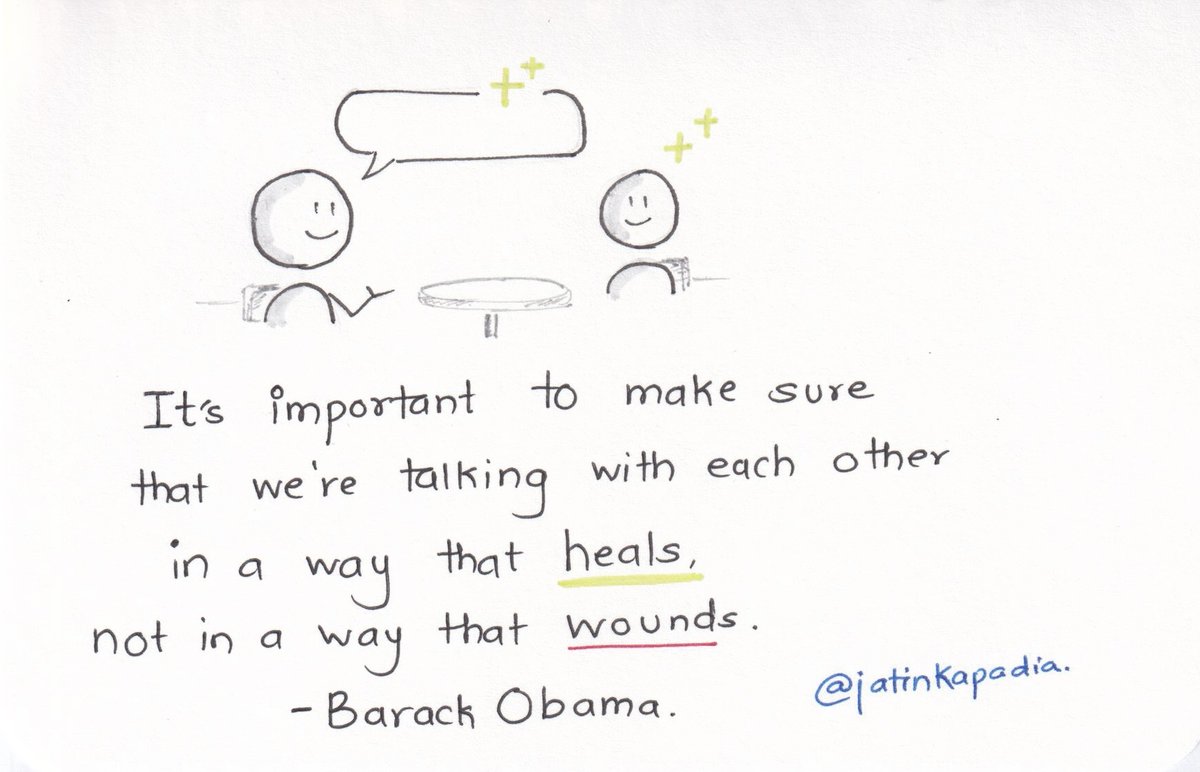 It's important to make sure
that we're talking with each other
in a way that heals,
not in a way that wounds.
- Barack Obama.
@jatinkapadia.